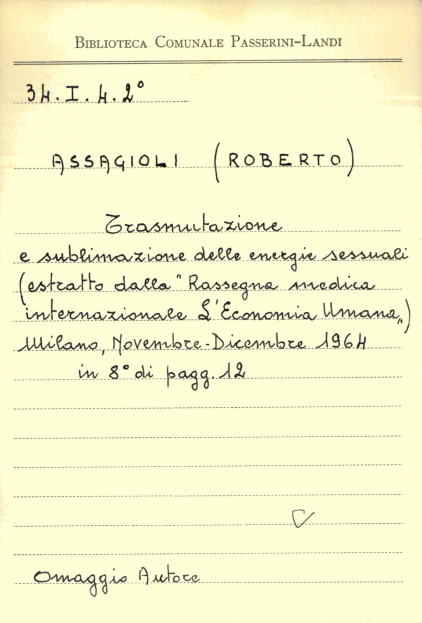 BIBLIOTECA COMUNALE PASSERINI-LANDI
34. I. 4. 2°
ASSAGIOLI (ROBERTO)
Trasmutazione
e sublimazione delle energie sessuali
(estratto dalla "Rassegna medica
internazionale L'Economia Umana")
Milano, Novembre-Dicembre 1964
in 8° di pagg. 12
Omaggio Autore